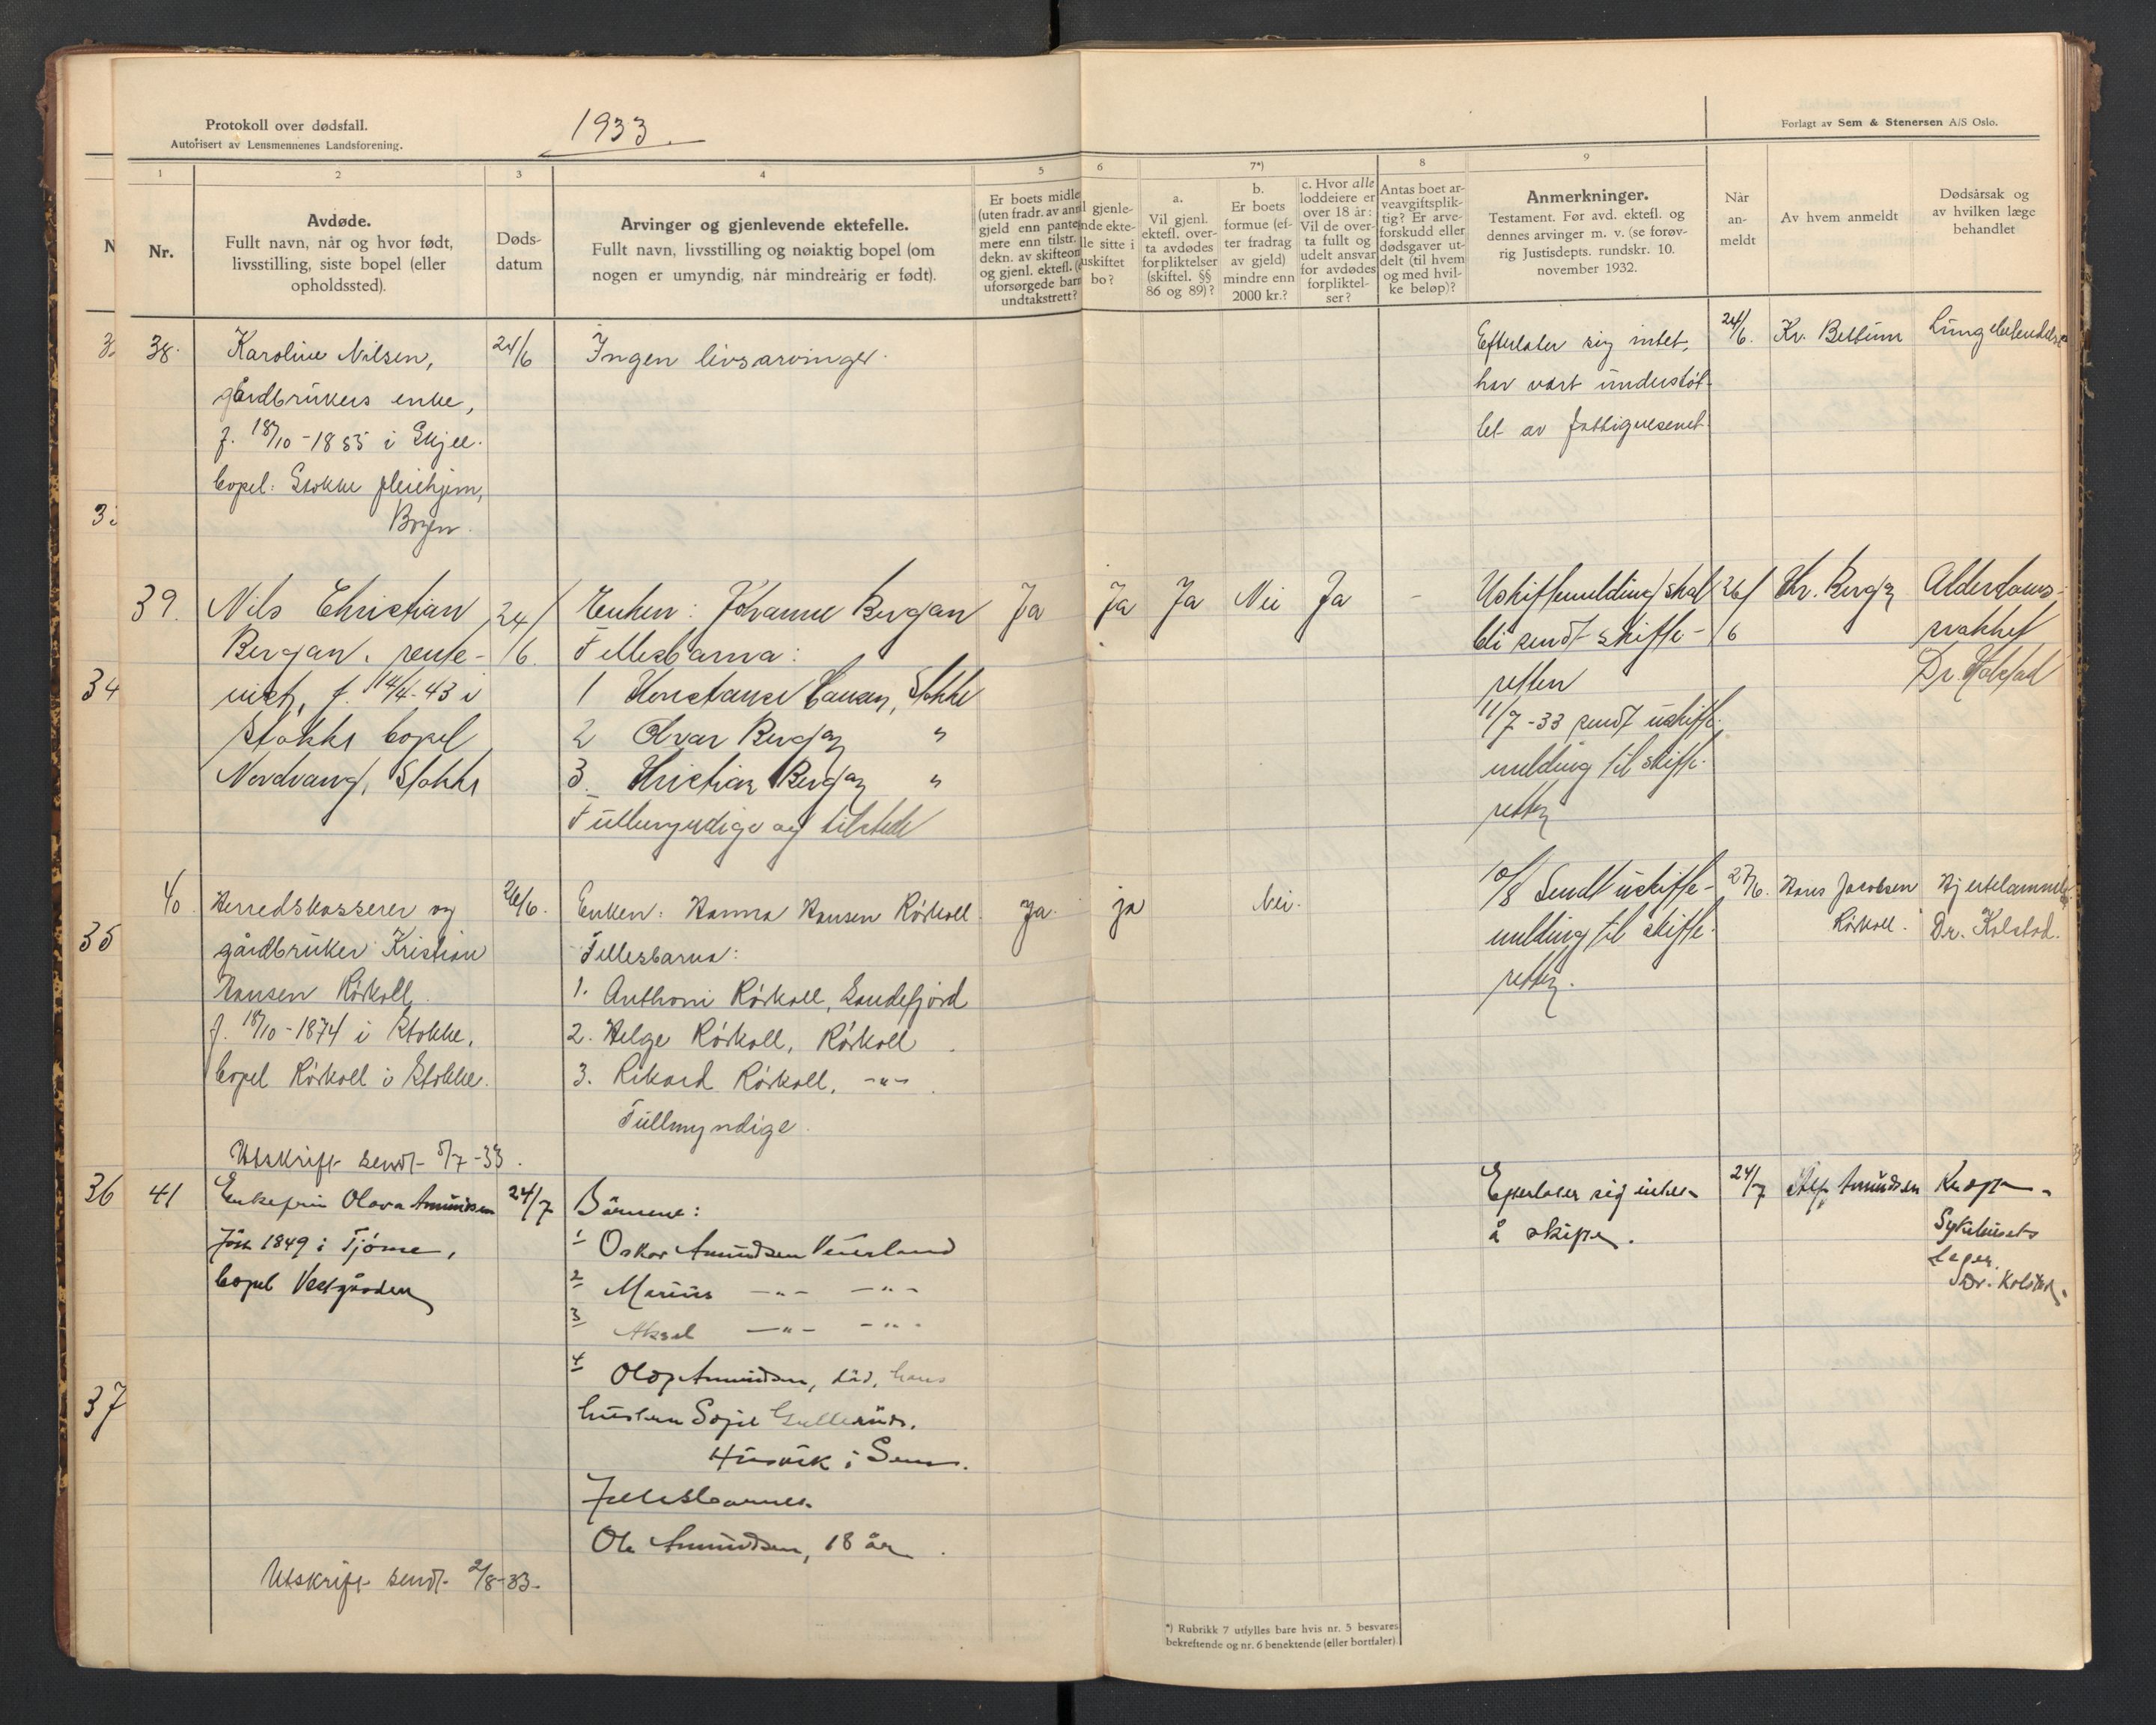 Protokoll over dødsfall.
Autorisert av Lensmennenes Landsforening.
1933.
Forlagt av Sem & Stenersen A/S Oslo.
1
2
3
4
5
6
7*)
8
9
N
Nr.
Avdøde.
Fullt navn, når og hvor født,
livsstilling, siste bopel (eller
opholdssted).
Døds-
datum
Arvinger og gjenlevende ektefelle.
Fullt navn, livsstilling og nøiaktig bopel (om
nogen er umyndig, når mindreårig er født).
Er boets midle
(uten fradr. av ann
gjeld enn pante
mere enn tilstr.
dekn. av skifteom
og gjenl. ektef.
uforsørgede barn
undtakstrett?
l gjenle-
nde ekte-
lle sitte i
uskiftet
bo?
a.
Vil gjenl.
ektefl. over-
ta avdødes
forpliktelser
(skiftel. §§
86 og 89)?
b.
Er boets
formue (ef-
ter fradrag
av gjeld)
mindre enn
2000 kr.?
c. Hvor alle
loddeiere er
over 18 år:
Vil de over-
ta fullt og
udelt ansvar
for avdødes
forpliktel-
ser?
Antas boet ar-
veavgiftsplik-
tig? Er arve-
forskudd eller
dødsgaver ut-
delt (til hvem
og med hvil-
ke beløp)?
Anmerkninger.
Testament. Før avd. ektefl. og
dennes arvinger m. v. (se forøv-
rig Justisdepts. rundskr. 10.
november 1932.
Når
an-
meldt
Av hvem anmeldt
Dødsårsak og
av hvilken læge
behandlet
38.
Karoline Nilsen,
gårdbrukers enke,
f. 18/10-1855 i Skjee.
bopel: Stokke pleiehjem,
Bogen.
24/6
Ingen livsarvinger.
Efterlater sig intet,
har vært understøt-
tet av fattigvesenet.
24/6.
Kr. Bettum
Lungebetendelse
39.
Nils Christian
Bergan, rente-
nist, f. 14/4-43 i
Stokke bopel
Nordvang, Stokke
24/6.
Enken: Johanne Bergan
Fellesbarna:
1 Konstanse Hansen, Stokke
2 Alvar Bergan "
3. Kristian Bergan "
Fullmyndige og tilstede
Ja
Ja
Ja
Nei
Ja
-
Uskiftemelding skal
bli sendt skifte-
retten
11/7-33 sendt uskifte-
melding til skifte-
retten
26/6
Kr. Bergan
Alderdoms-
svakhet
Dr. Kolstad
40.
Herredskasserer og
gårdbruker Kristian
Hansen Rørkoll
f. 18/10-1874 i Stokke,
bopel Rørkoll i Stokke.
Utskrift sendt 5/7-33.
26/6.
Enken: Hanna Hansen Rørkoll
Fellesbarna:
1. Anthoni Rørkoll, Sandefjord
2. Helge Rørkoll, Rørkoll.
3. Rikard Rørkoll, -"-.
Fullmyndige.
Ja.
ja
Nei.
10/8 Sendt uskifte-
melding til skifte-
retten.
27/6.
Hans Jacobsen
Rørkoll.
Hjertelammelse
Dr. Kolstad.
41
Enkefru Olava Amundsen
født 1849 i Tjøme,
bopel Vestgården
24/7
Barnene:
1 Oskar Amundsen Veierland
2 Marius -"- -"-
3 Aksel -"- -"-
4 Olaf Amundsen, død, hans
hustru Sofie Gulliksen.
Husvik i Sem.
Fellesbarnet
Ole Amundsen, 18 år.
Utskrift sendt 2/8-33-
Efterlater sig intet
å skifte.
24/7
Amundsen
Sykehusets
Læger.
Dr. Kolstad.
34
35
36
37
*) Rubrikk 7 utfylles bare hvis nr. 5 besvares
bekreftende og nr. 6 benektende (eller bortfaler).